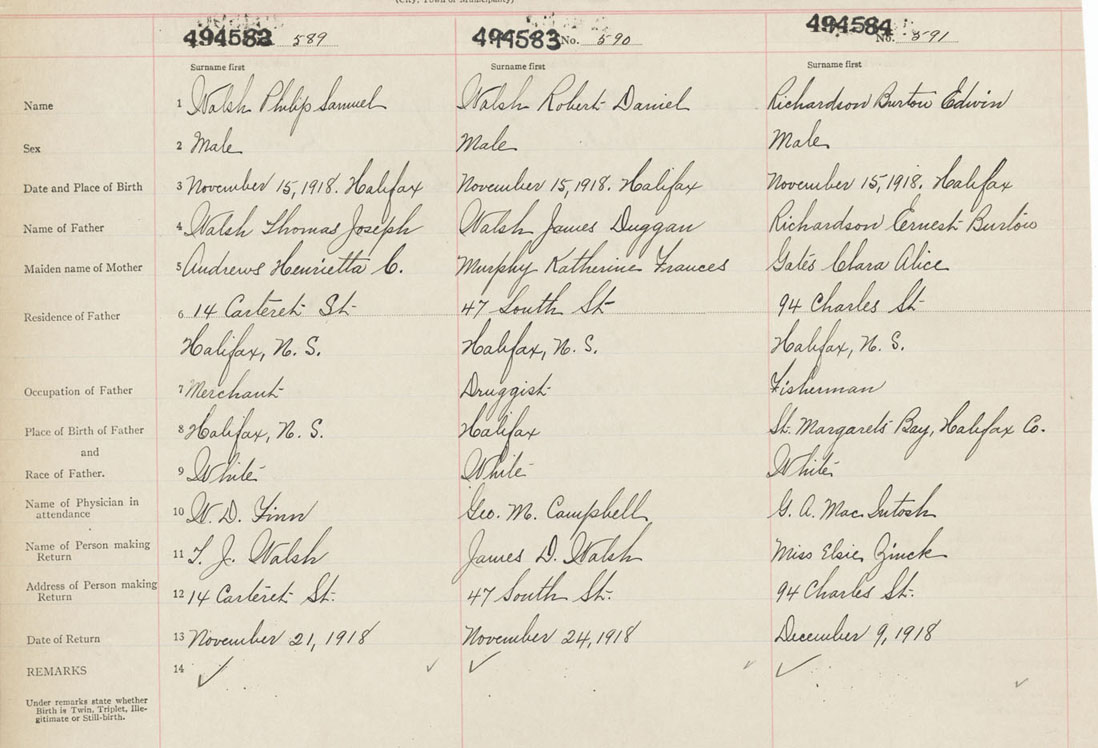 (City, Town or Municipality)
494583 589 494583 No. 590 494584 No. 591
Surname first Surname first Surname first
Name 1 Walsh Philip Samuel Walsh Robert Daniel Richardson Burton Edwin
Sex 2 Male Male Male
Date and Place of Birth 3 November 15, 1918. Halifax November 15, 1918. Halifax November 15, 1918. Halifax
Name of Father 4 Walsh Thomas Joseph Walsh James Duggan Richardson Ernest Burton
Maiden name of Mother 5 Andrews Henrietta C. Murphy Katherine Frances Gates Clara Alice
Residence of Father 6 14 Carteret St 47 South St 94 Charles St
Halifax, N. S. Halifax, N. S. Halifax, N. S.
Occupation of Father 7 Merchant Druggist Fisherman
Place of Birth of Father 8 Halifax, N. S. Halifax St. Margarets Bay, Halifax Co.
and
Race of Father. 9 White White White
Name of Physician in
attendance 10 W. D. Finn Geo. M. Campbell G. A. MacIntosh
Name of Person making
Return 11 T. J. Walsh James D. Walsh Miss Elsie Zinck
Address of Person making
Return 12 14 Carteret St. 47 South St. 94 Charles St.
Date of Return 13 November 21, 1918 November 24, 1918 December 9, 1918
REMARKS 14
Under remarks state whether
Birth is Twin, Triplet, Ille-
gitimate or Still-birth.